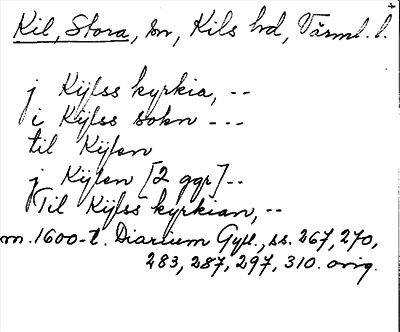 Kil, Stora, sn, Kils hd, Värml. l. +
j Kijlss kyrkia, --
i Kijlss sokn ---
til Kijlen
j Kijlen [2 ggr] --
Til Kijlss kyrkian, --
m. 1600-t. Diarium Gyll., ss. 267, 270,
283, 287, 297, 310. orig.